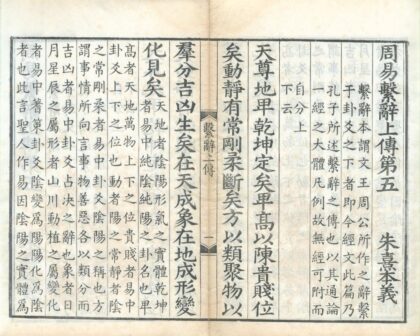 周易繫辭上傳第五 朱熹本義
繫辭本謂文王周公所作之辭繫
于卦爻之下者即今經文此篇乃
孔子所述繫辭之傳也以其通論
一經之大體凡例故無經可附而
自分上
下云
天尊地卑乾坤定矣卑高以陳貴賤位
矣動靜有常剛柔斷矣方以類聚物以
繫辭上傳 一
羣分吉凶生矣在天成象在地成形變
化見矣 天地者陰陽形氣之實體乾坤
者易中純陰純陽之卦名也卑
高者天地萬物上下之位貴賤者易中
卦爻上下之位也動者陽之常靜者陰
之常剛柔者易中卦爻陰陽之稱也方
謂事情所向言事物善惡各以類分而
吉凶者易中卦爻占決之辭也象者日
月星辰之屬形者山川動植之屬變化
者易中蓍策卦爻陰變爲陽陽化爲陰
者也此言聖人作易因陰陽之實體爲